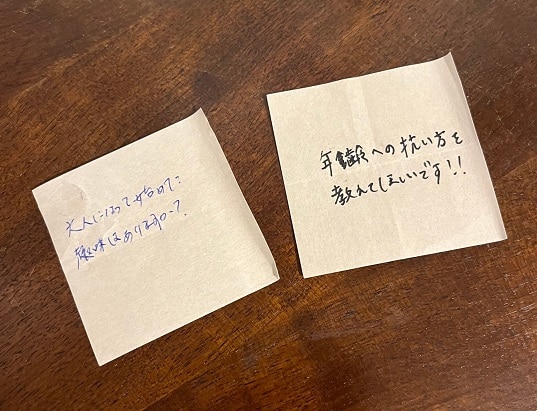 大人になって始めた
趣味はありますか?
年齢への抗い方を
教えてほしいです!!